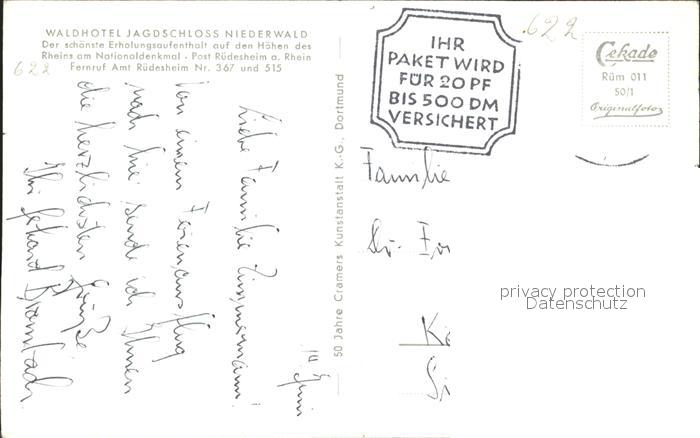 WALDHOTEL JAGDSCHLOSS NIEDERWALD
Der schönste Erholungsaufenthalt auf den Höhen des
Rheins am Nationaldenkmal - Post Rüdesheim a. Rhein
Fernruf Amt Rüdesheim Nr. 367 und 515
622
622
IHR
PAKET WIRD
FÜR 20 PF
BIS 500 DM
VERSICHERT
Cekade
Rüm 011
50/1
Originalfoto
50 Jahre Cramers Kunstanstalt K.-G., Dortmund
Juni
Liebe Familie Zimmermann!
Von einem Ferienausflug
nach hier sende ich Ihnen
die herzlichsten Grüße
Ihr Gerhard
Familie
Dr.
Ke
Si
privacy protection
Datenschutz